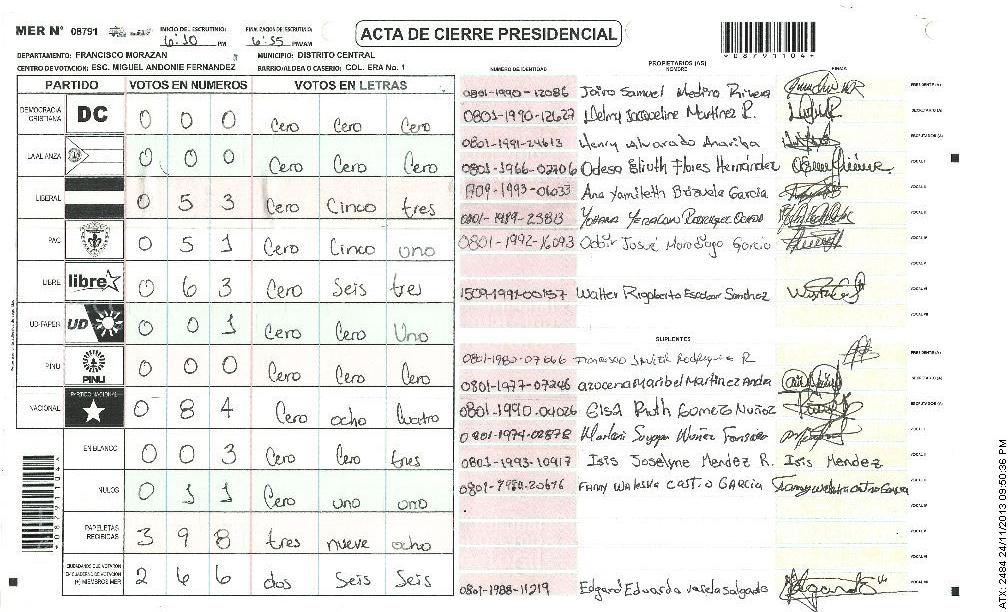 MER N° 08791 INICIO DEL ESCRUTINIO: 6:10 PM FINALIZACION DE ESCRUTINIO: 6:35 PM/AM
ACTA DE CIERRE PRESIDENCIAL
*08791104*
DEPARTAMENTO: FRANCISCO MORAZAN MUNICIPIO: DISTRITO CENTRAL
CENTRO DE VOTACION: ESC. MIGUEL ANDONIE FERNANDEZ BARRIO/ALDEA O CASERIO: COL. ERA No. 1
PARTIDO VOTOS EN NUMEROS VOTOS EN LETRAS
DEMOCRACIA CRISTIANA DC 0 0 0 Cero Cero Cero
LA ALIANZA 0 0 0 Cero Cero Cero
LIBERAL 0 5 3 Cero Cinco tres
PAC 0 5 1 Cero Cinco uno
LIBRE libre 0 6 3 Cero Seis tres
UD-FAPER UD 0 0 1 Cero Cero Uno
PINU PINU 0 0 0 Cero Cero Cero
NACIONAL PARTIDO NACIONAL 0 8 4 Cero ocho Cuatro
EN BLANCO 0 0 3 Cero Cero tres
NULOS 0 1 1 Cero uno uno
PAPELETAS RECIBIDAS 3 9 8 tres nueve ocho
CIUDADANOS QUE VOTARON EN CUADERNO DE VOTACION (+) MIEMBROS MER 2 6 6 dos Seis Seis
*08791104*
NUMERO DE IDENTIDAD PROPIETARIOS (AS) NOMBRE FIRMA
0801-1990-12086 Jairo Samuel Medina Rivera PRESIDENTE (A)
0801-1990-12627 Delmy Jacqueline Martinez R. SECRETARIO (A)
0801-1991-24613 Henry Alvarado ESCRUTADOR (A)
0801-1966-02706 Odesa Eliuth Flores Hernández VOCAL I
1709-1993-06033 Ana Yamileth Garcia VOCAL II
0801-1989-23813 Yohana VOCAL III
0801-1992-16093 Odair Josué Garcia VOCAL IV
1509-1991-00157 Walter Rigoberto Escobar Sanchez
SUPLENTES
0801-1980-07666 Francisco Javier Rodriguez R. PRESIDENTE (A)
0801-1977-07246 azucena Maribel Martinez Andra SECRETARIO (A)
0801-1990-04026 Elsa Ruth Gomez Nuñoz ESCRUTADOR (A)
0801-1974-02878 Nuñez
0801-1993-10917 Isis Joselyne Mendez R. Isis Mendez
Fany Waleska Castro Garcia
0801-1988-11219 Edgard Eduardo varela Salgado
ATX. 2484 24/11/2013 09:50:36 PM